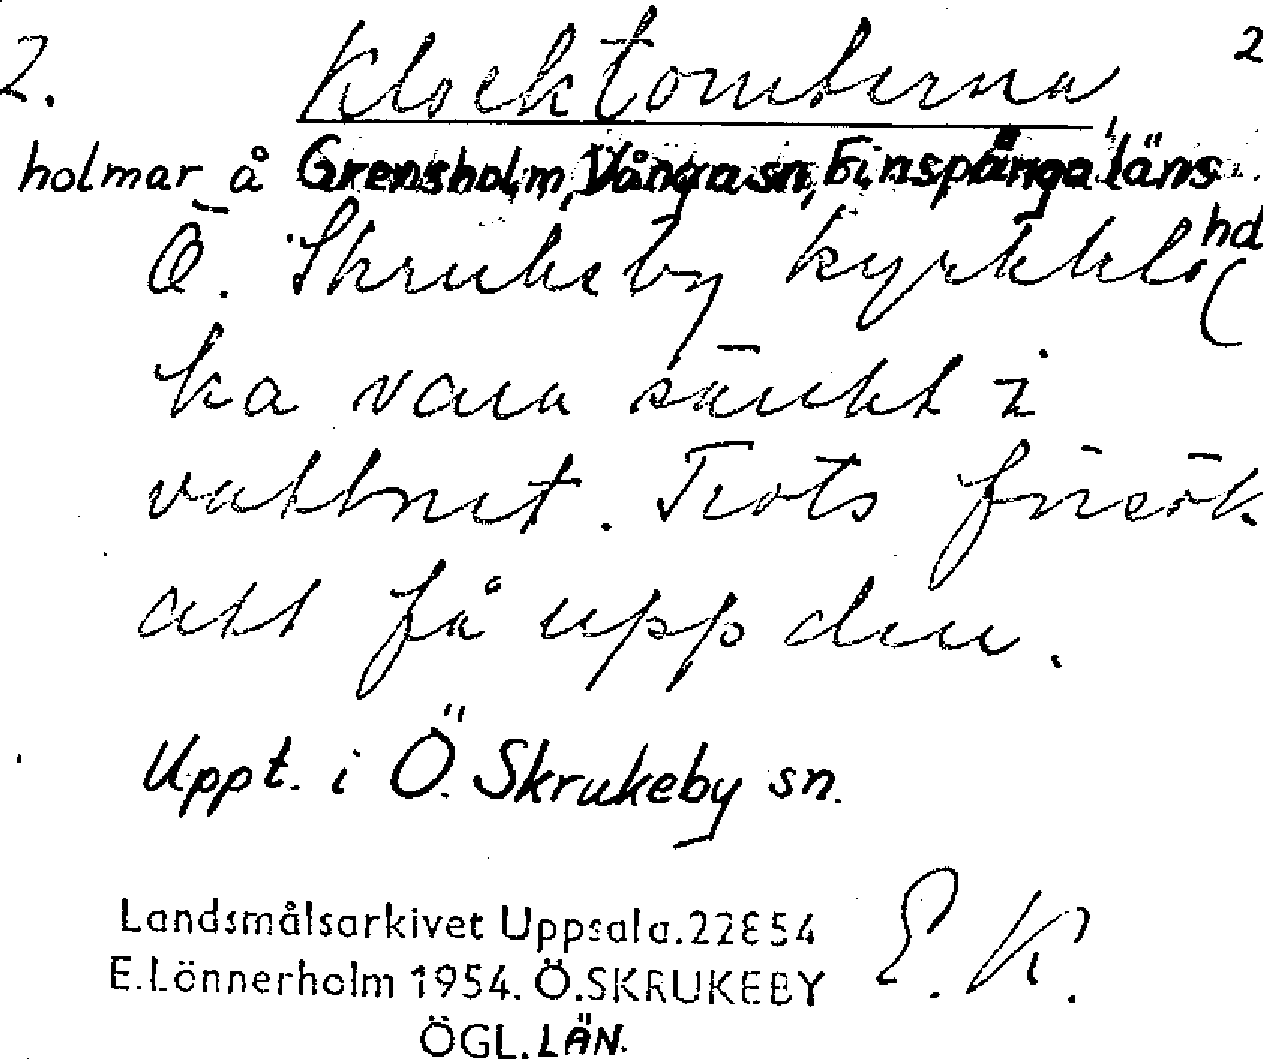 2. Klocktomterna 2
holmar å Grensholm, Vånga sn, Finspånga läns
hd
Ö. Skrukeby kyrkklo(
ka vara sänkt i
vattnet. Trots försök
att få upp den.
Uppt. i Ö. Skrukeby sn.
Landsmålsarkivet Uppsala. 22854
E. Lönnerholm 1954. Ö. SKRUKEBY
E. K.
ÖGL. LÄN.